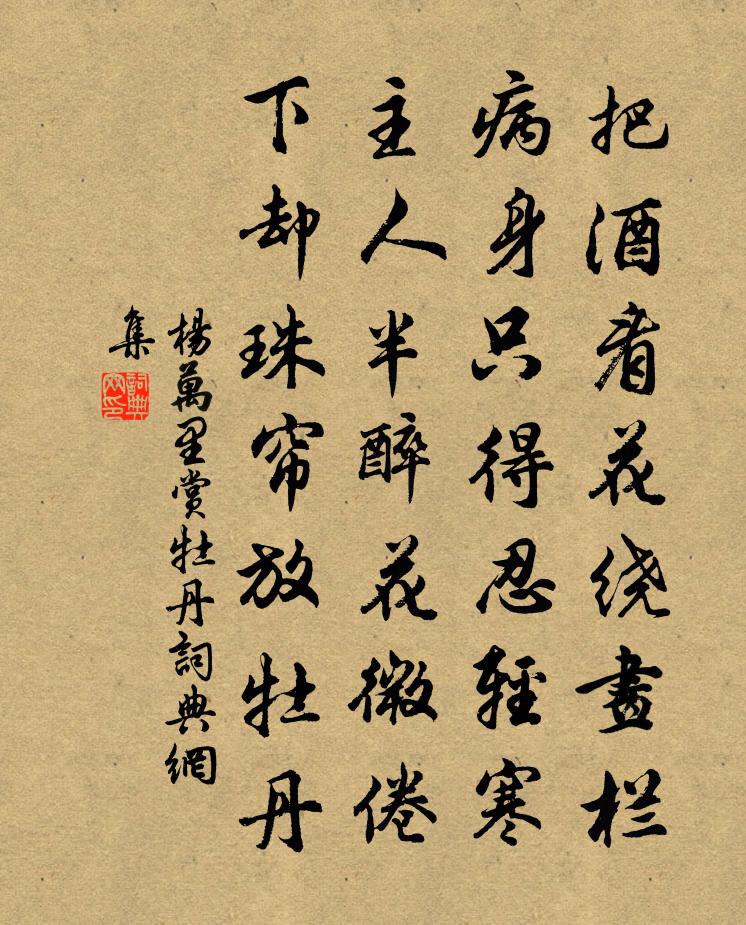 把酒看花绕畫栏
病身只得忍輕寒
主人半醉花微倦
下却珠帘放牡丹
楊萬里賞牡丹詞典網
集
詞典
网印